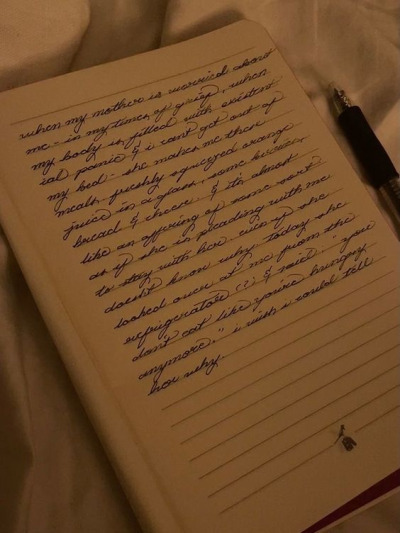 when my mother is worried about
me - in my times of grief, when
my body is filled with existent
ial panic & i can't get out of
my bed - she makes me these
meals. freshly squeezed orange
juice in a glass, some
bread & cheese & it's almost
like an offering of some sort
as if she is pleading with me
to stay with her. even if she
doesn't know why. today she
looked over at me from the
refrigerator (?) & said "you
don't eat like you're hungry
anymore." i wish i could tell
her why.